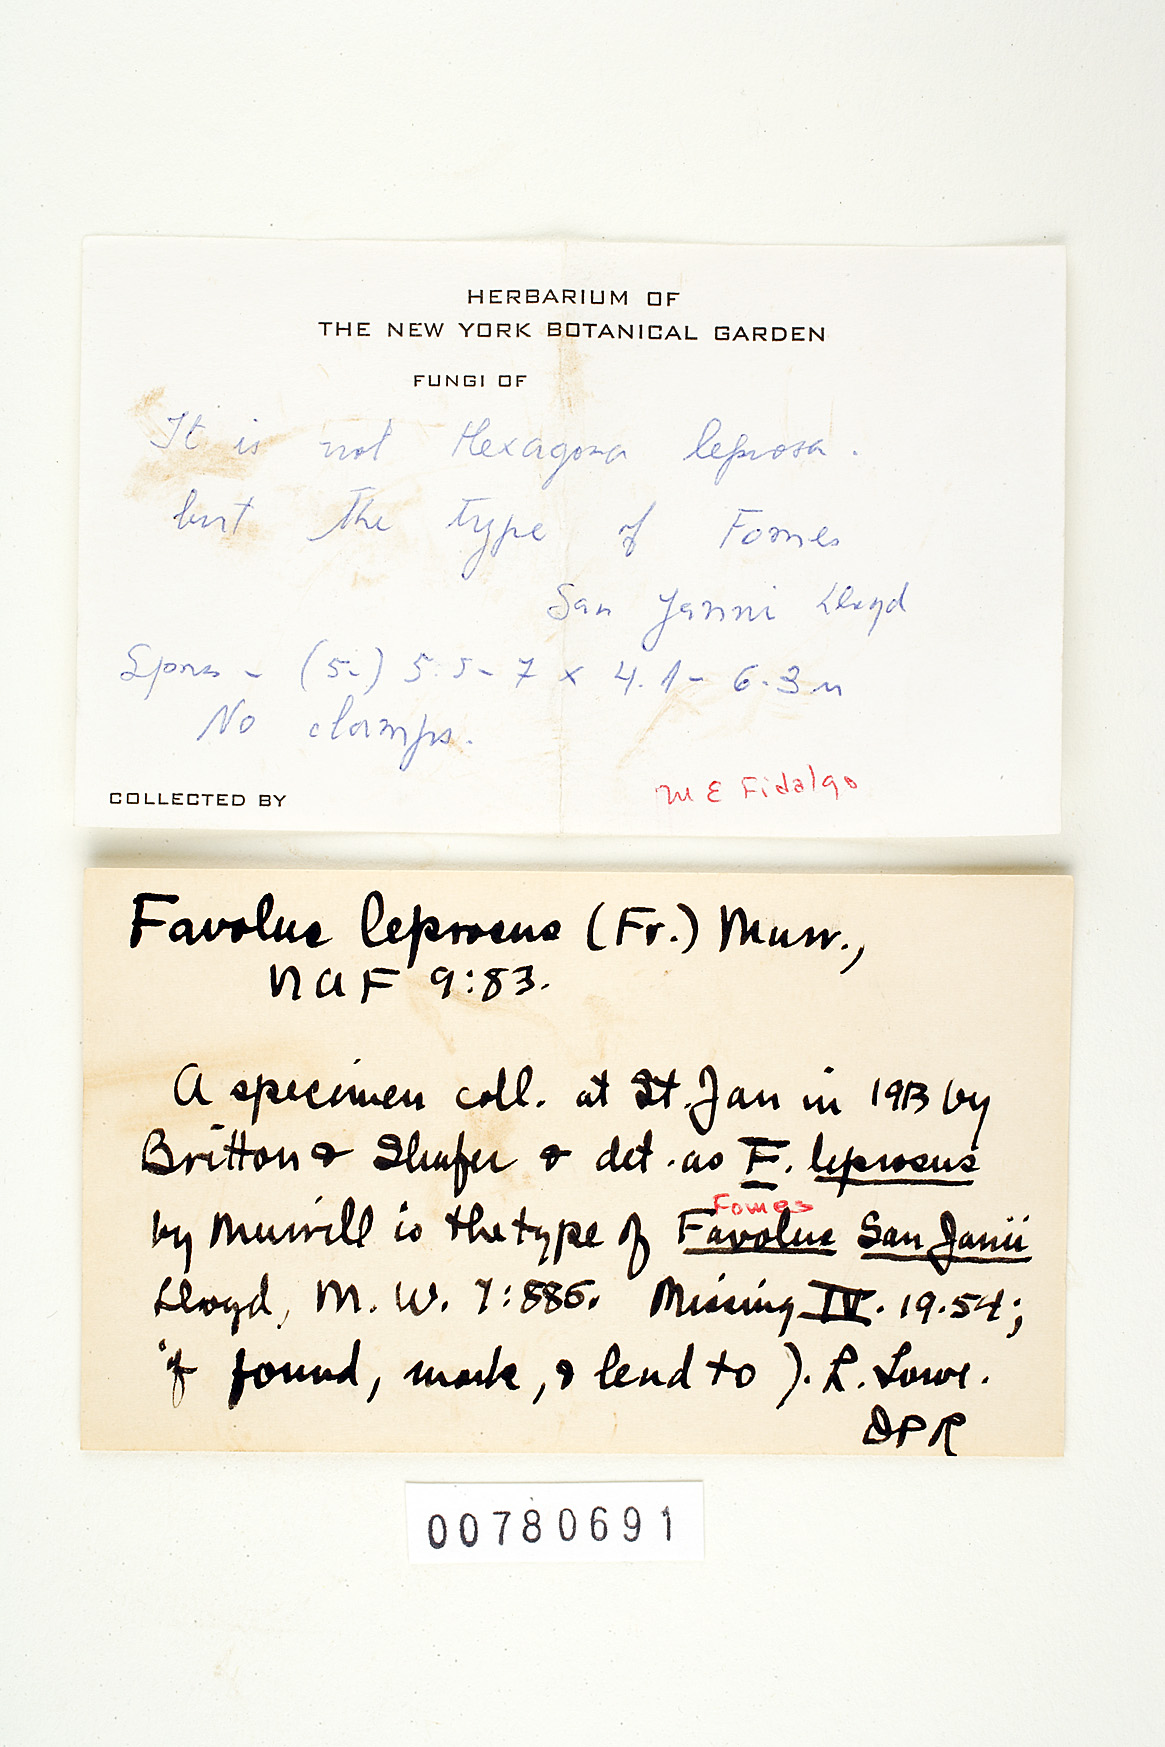 HERBARIUM OF
THE NEW YORK BOTANICAL GARDEN
FUNGI OF
It is not Hexagona leprosa.
but the type of Fomes
San Janni Lloyd
Spores - (5-) 5.5 - 7 x 4.1 - 6.3 u
No clamps.
COLLECTED BY
M E Fidalgo
Favolus leprosus (Fr.) Murr.,
NAF 9:83.
A specimen coll. at St. Jan in 1913 by
Britton & Shafer & det. as F. leprosus
Fomes
by Murrill is the type of Favolus San Janii
Lloyd, M. W. 7:886. Missing IV. 19.54;
if found, mark, & lend to J. L. Lowe.
DPR
00780691